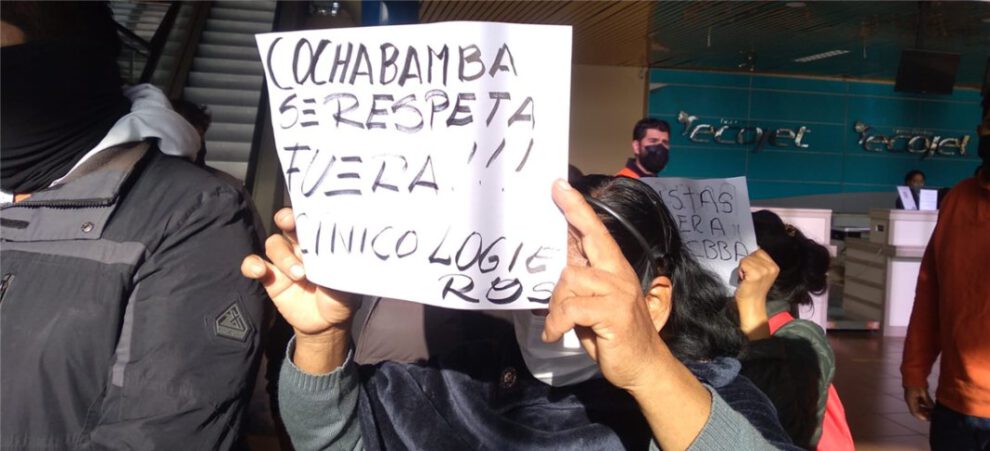 COCHABAMBA
SE RESPETA
FUERA.!!!
CINICO LOGIE
ROS
ISTAS
ERA
CBBA
ecojet
ecojet